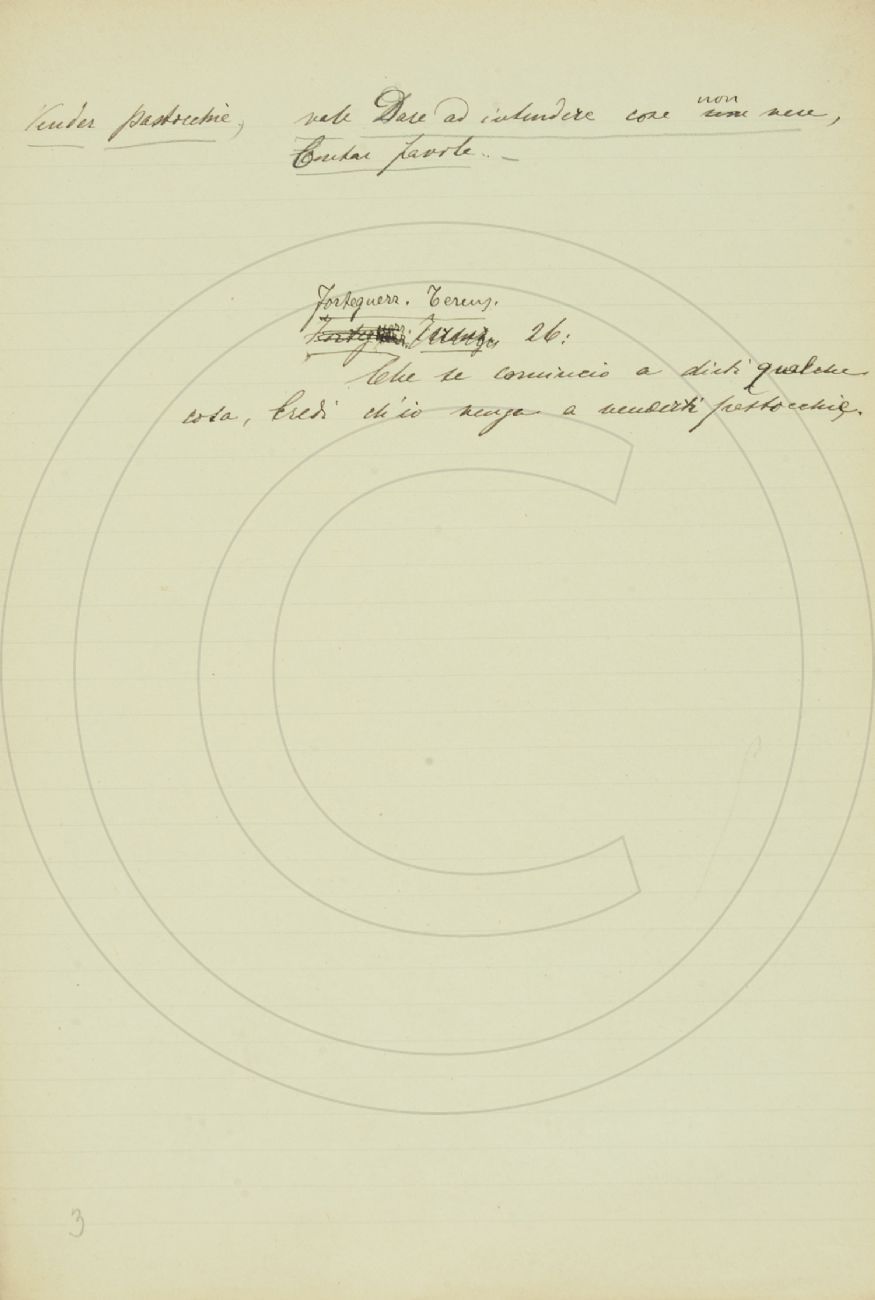 Vender pastocchie, vale Dare ad intendere cose non vere,
Contar favole. –
Forteguerr. Terenz.
Terenz. 26:
Che se comincio a dirti qualche
cosa, Credi ch'io venga a venderti pastocchie.
3